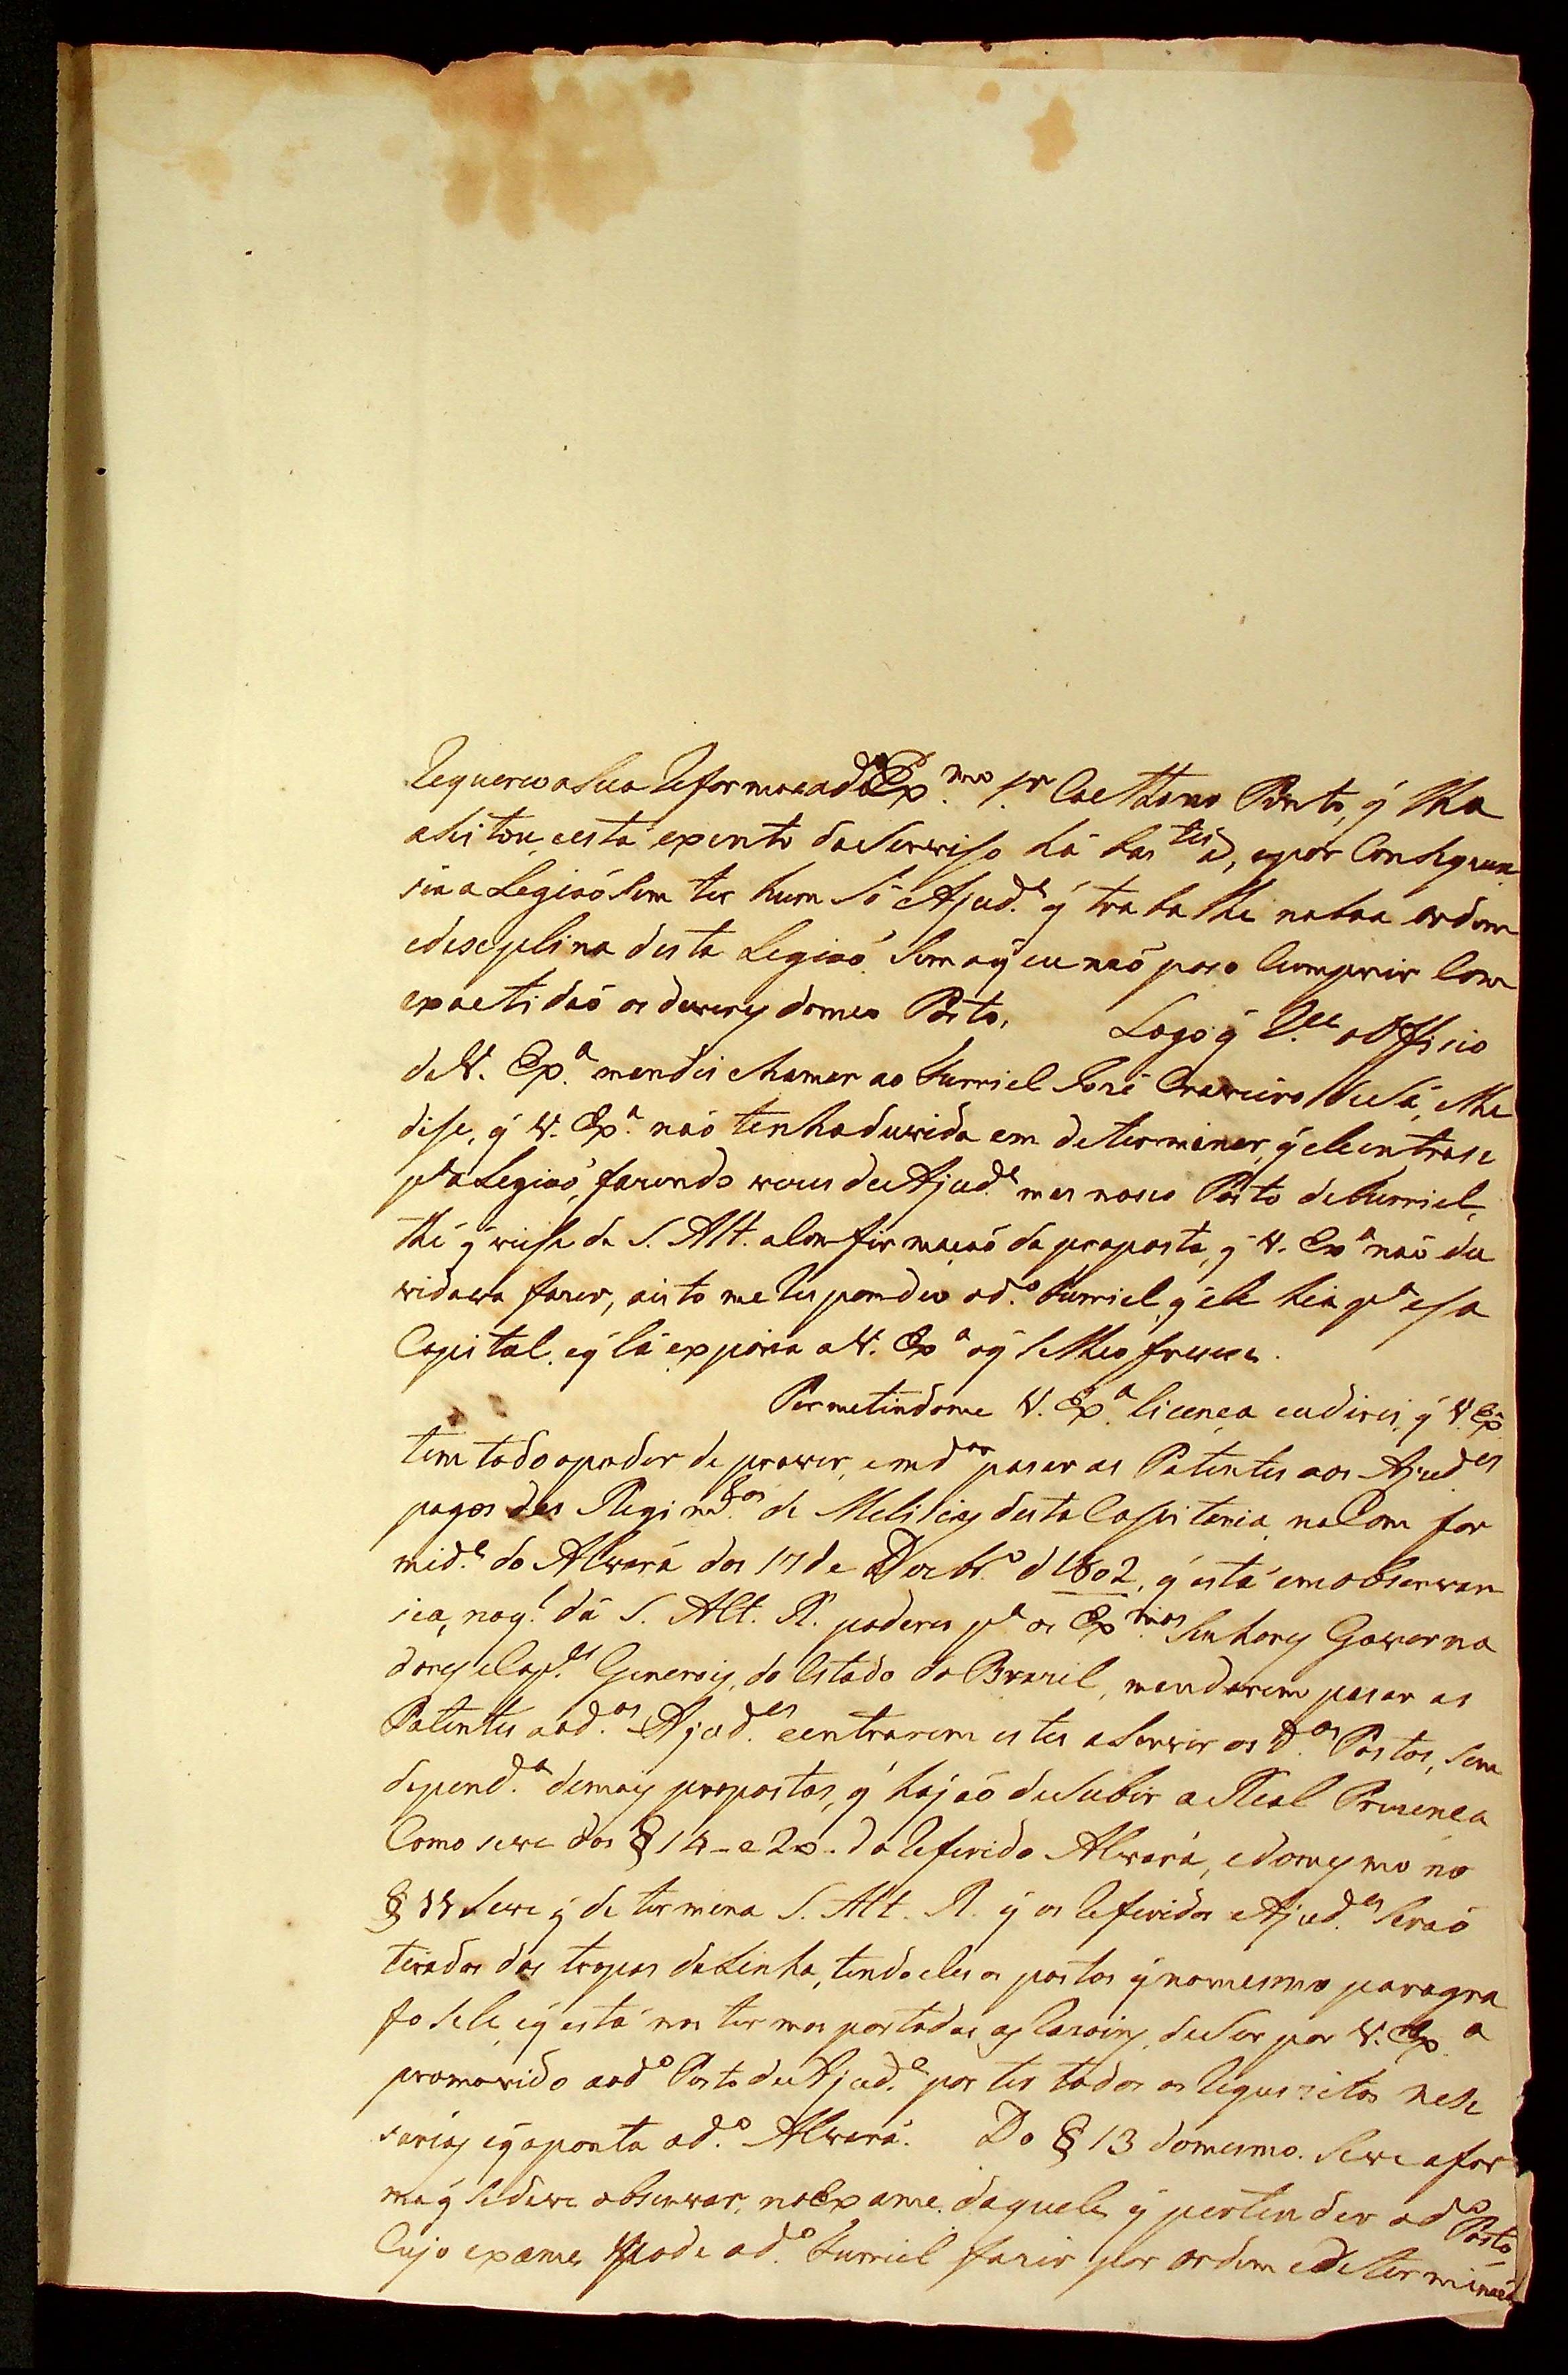 Requereo a Sua Reforma ao Ex.mo Sr. Caettano Pinto, q̃ lha
aseitou, e está exento do Serviso há bas.tes d.as, e por Consequen
sia a Legiaõ Sem ter hum Só Ajud.e q̃ trabalhe na boa ordem
e diseplina desta Legiaõ, Sem a q̃ eu naõ poso Cumprir Com
exactidaõ os deverez do meo Posto. Logo q̃ R.ce o Offisio
de V. Ex.a mandei chamar ao Furriel José Craveiro de Sá, e lhe
dise, q̃ V. Ex.a naõ tenha duvida em determinar, q̃ ele entrase
p.a a Legiaõ, fazendo vezes de Ajud.e mas no seo Posto de Furriel,
thé q̃ viese de S. Alt. a Confirmaçaõ da proposta, q̃ V. Ex.a naõ du
vidava fazer, a isto me Respondeo o d.o Furriel, q̃ ele hia p.a esa
Capital, e q̃ lá exporia a V. Ex.a o q̃ Se lhe oferece.
Permetindome V. Ex.a licença eu direi, q̃ V. Ex.a
tem todo o poder de prover, e md.ar pasar as Patentes aos Ajud.es
pagos dos Regim.tos de Melisiaz desta Capitania, na Com for
mid.e do Alvará dos 17 de Dezbr.o d 1802, q̃ está em observan
sia, no q.l dá S. Alt. R. poderes p.a os Ex.mos Senhorez Governa
dorez e Cap.es Generaiz, do Estado do Brazil, mandarem pasar as
Patentes aos d.os Ajud.es e entrarem estes a Servir os d.os Postos, Sem
depend.a de maiz propostas, q̃ hajaõ de Subir a Real Prezença
Como se ve dos § 14 e 20 do Referido Alvará, e do mezmo no
§ 11 Se ve q̃ determina S. Alt. R. q̃ os Referidos Ajud.es Seraõ
tirados das tropas de Linha, tendo eles os postos q̃ no mesmo paragra
fo Se lê, e q̃ está nos termos por todas az Razoinz, de Ser por V. Ex.a
promovido ao d.o Posto de Ajud.e por ter todos os Requizitos nese
sariaz e q̃ aponta o d.o Alvará. Do § 13 do mesmo. Se ve a for
ma q̃ Se deve observar, no Exame, daquele q̃ pertender o d.o Posto,
Cujo exame, Pode o d.o Furriel fazer por ordem e determinaçaõ